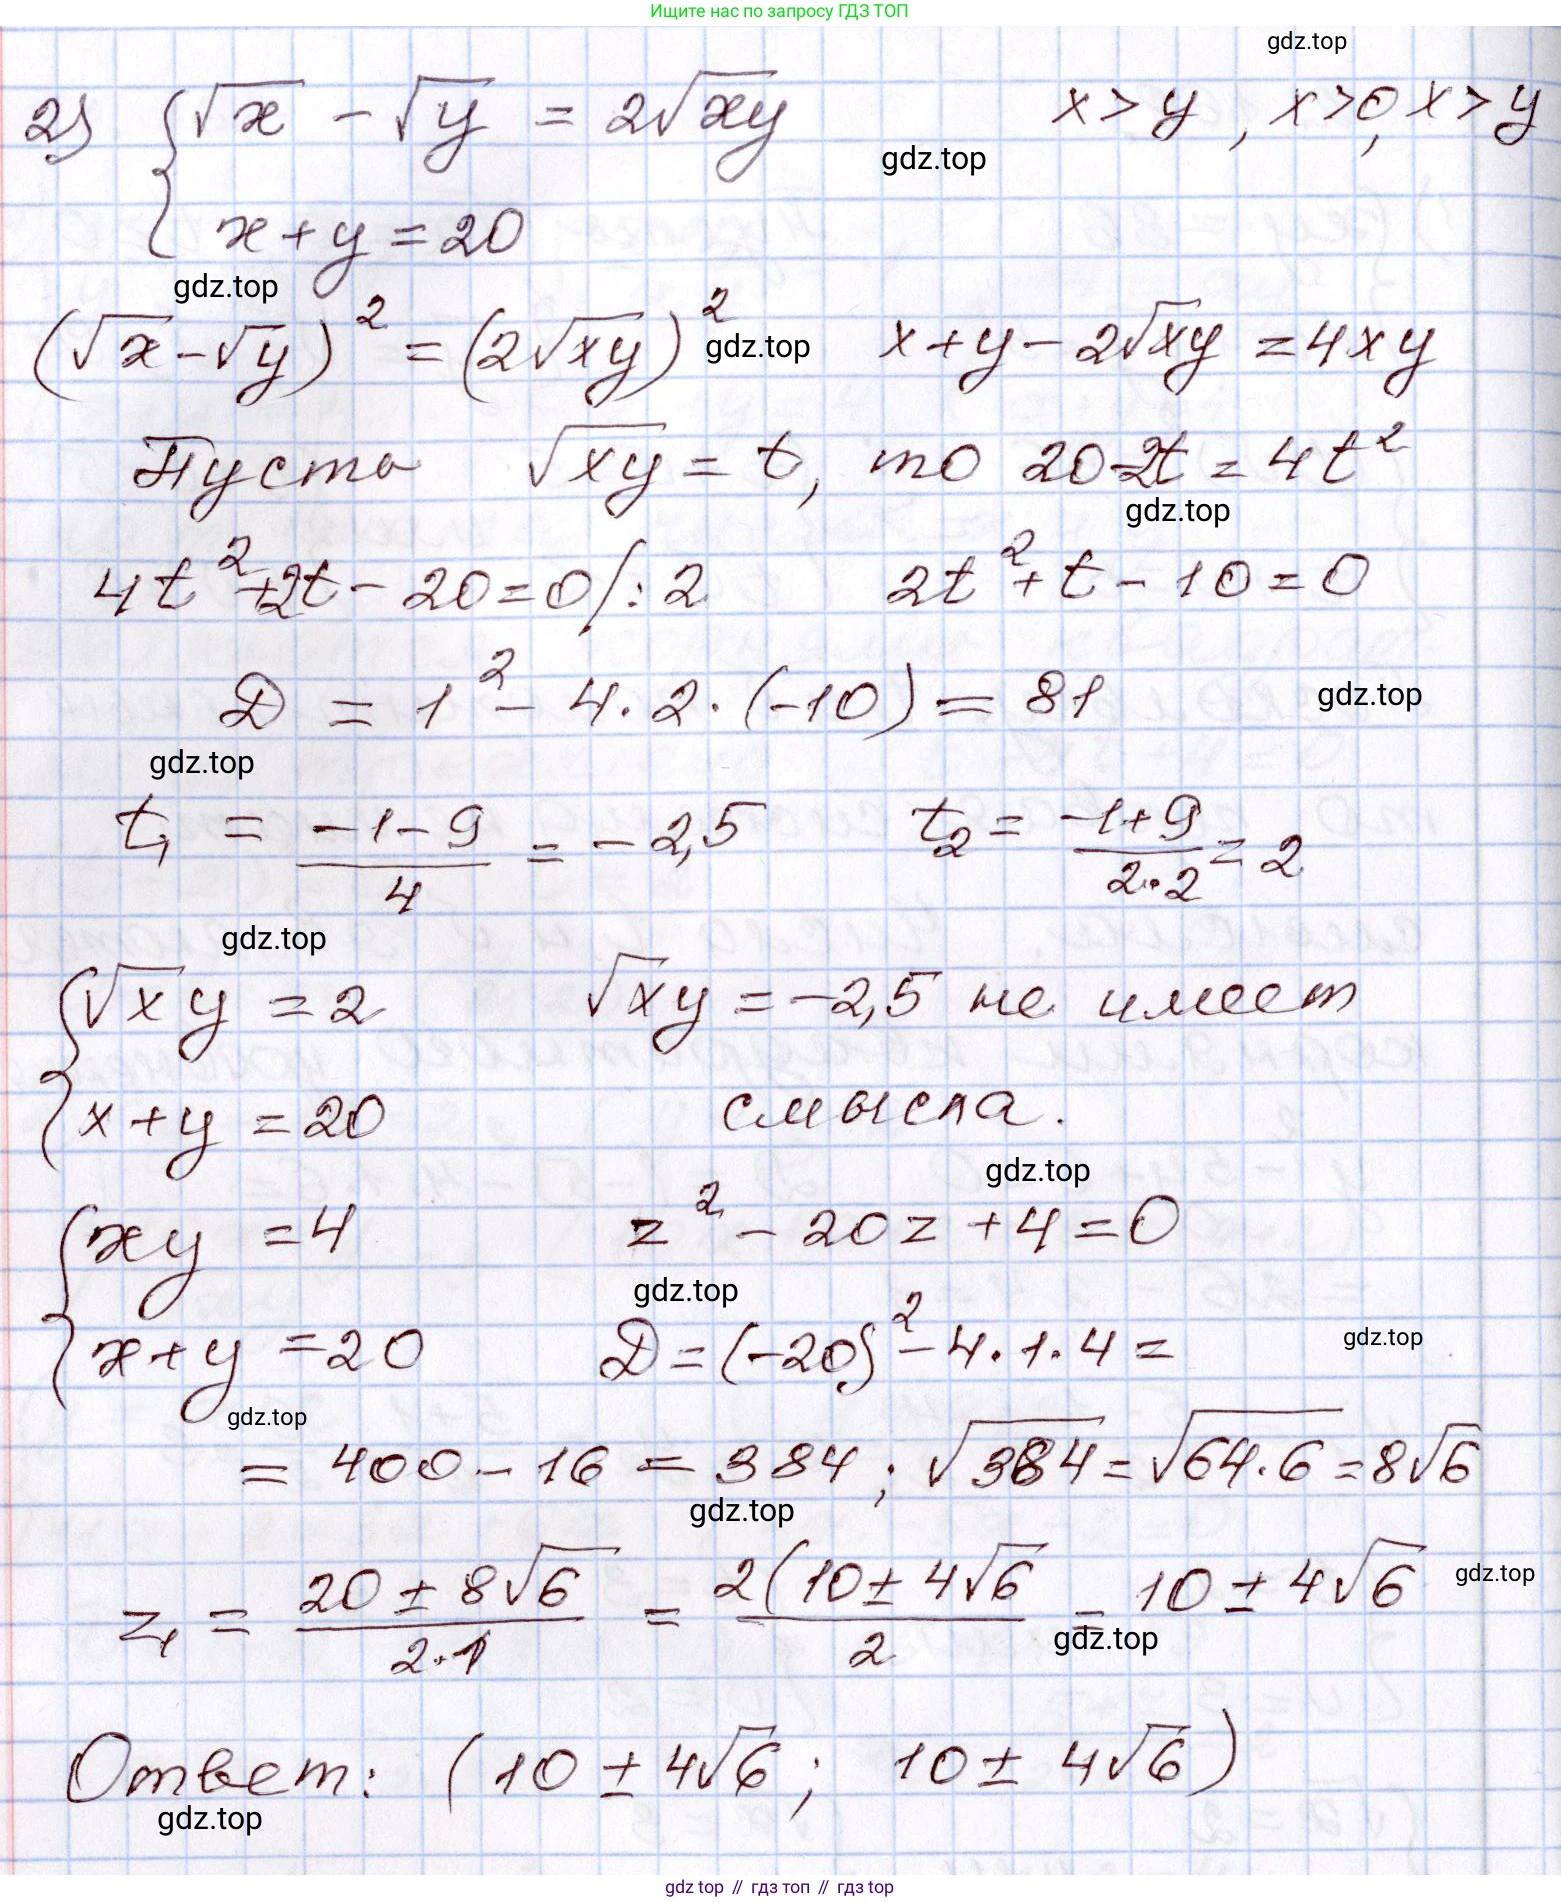 Ищите нас по запросу ГДЗ ТОП
gdz.top
2) { √x - √y = 2√xy    x > y , x > 0, x > y
gdz.top
x + y = 20
gdz.top
(√x - √y)² = (2√xy)²    gdz.top    x + y - 2√xy = 4xy
Пусть √xy = t, то 20-2t = 4t²
gdz.top
4t² + 2t - 20 = 0 /:2    2t² + t - 10 = 0
D = 1² - 4·2·(-10) = 81    gdz.top
gdz.top
t₁ = (-1-9)/4 = -2,5    t₂ = (-1+9)/(2·2) = 2
gdz.top
{ √xy = 2    √xy = -2,5 не имеет
x + y = 20    смысла.
gdz.top
{ xy = 4    z² - 20z + 4 = 0
gdz.top
x + y = 20    D = (-20)² - 4·1·4 =    gdz.top
gdz.top
= 400 - 16 = 384 ; √384 = √64·6 = 8√6
gdz.top
z₁ = (20 ± 8√6)/(2·1) = 2(10 ± 4√6/2 = 10 ± 4√6    gdz.top
gdz.top
Ответ: (10 ± 4√6 ; 10 ± 4√6)
gdz.top
gdz top // гдз топ // гдз top